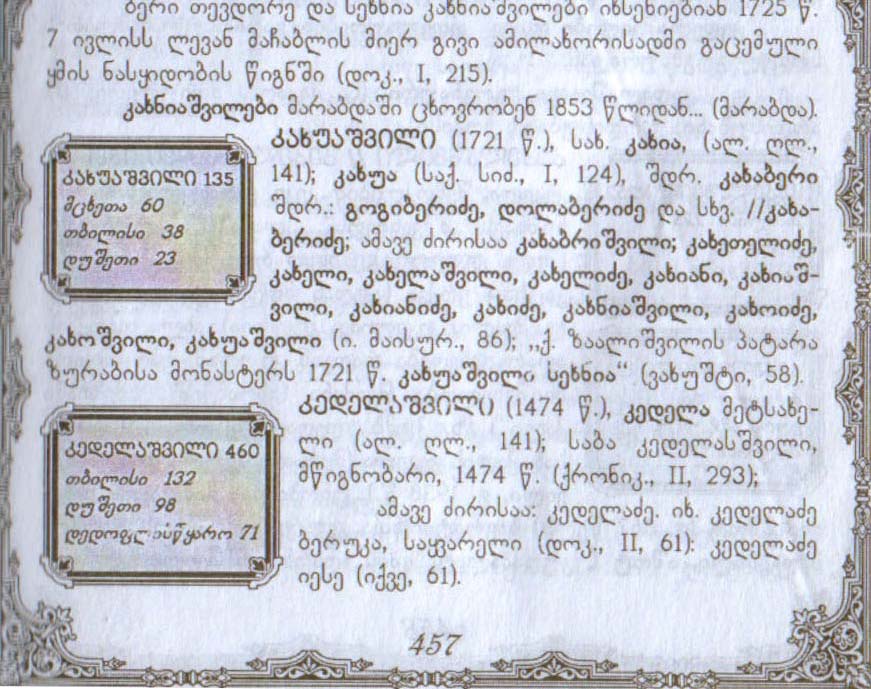 ბერი თევდორე და სეხნია კახნიაშვილები იხსენიებიან 1725 წ.
7 ივლისს ლევან მაჩაბლის მიერ გივი ამილახორისადმი გაცემული
ყმის ნასყიდობის წიგნში (დოკ., I, 215).
კახნიაშვილები მარაბდაში ცხოვრობენ 1853 წლიდან... (მარაბდა).
კახუაშვილი 135
მცხეთა 60
თბილისი 38
დუშეთი 23
კახუაშვილი (1721 წ.), სახ. კახია, (ალ. ღლ.,
141); კახუა (საქ. სიძ., I, 124), შდრ. კახაბერი
შდრ.: გოგიბერიძე, დოლაბერიძე და სხვ. //კახა-
ბერიძე; ამავე ძირისაა კახაბრიშვილი; კახეთელიძე,
კახელი, კახელაშვილი, კახელიძე, კახიანი, კახიაშ-
ვილი, კახიანიძე, კახიძე, კახნიაშვილი, კახოიძე,
კახოშვილი, კახუაშვილი (ი. მაისურ., 86); „ქ. ზაალიშვილის პატარა
ზურაბისა მონასტერს 1721 წ. კახუაშვილი სეხნია“ (ვახუშტი, 58).
კედელაშვილი 460
თბილისი 132
დუშეთი 98
დედოფლისწყარო 71
კედელაშვილი (1474 წ.), კედელა მეტსახე-
ლი (ალ. ღლ., 141); საბა კედელასშვილი,
მწიგნობარი, 1474 წ. (ქრონიკ., II, 293);
ამავე ძირისაა: კედელაძე. იხ. კედელაძე
ბერუკა, საყვარელი (დოკ., II, 61): კედელაძე
იესე (იქვე, 61).
457